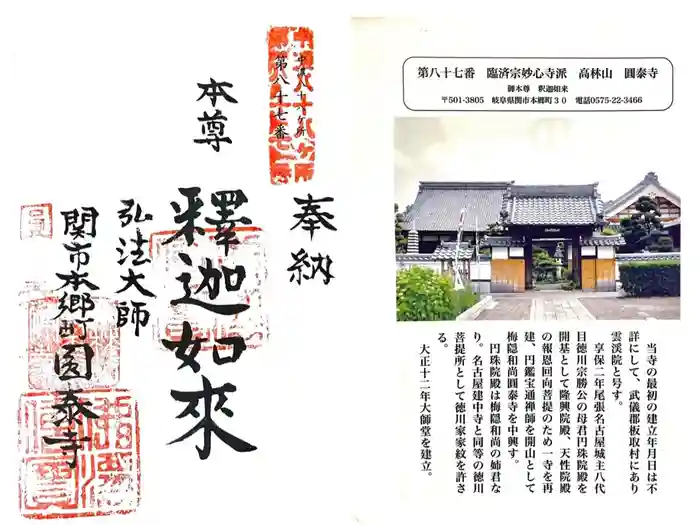 奉納
第八十七番
本尊
釋迦如來
弘法大師
関市本郷町 圓泰寺
第八十七番 臨済宗妙心寺派 高林山 圓泰寺
御本尊 釈迦如来
〒501-3805 岐阜県関市本郷町30 電話0575-22-3466
当寺の最初の建立年月日は不
詳にして、武儀郡板取村にあり
雲渓院と号す。
享保二年尾張名古屋城主八代
目徳川宗勝公の母君円珠院殿を
開基として隆興院殿、天性院殿
の報恩回向菩提のため一寺を再
建、円鑑宝通禅師を開山として
梅隠和尚圓泰寺を中興す。
円珠院殿は梅隠和尚の姉君な
り。名古屋建中寺と同等の徳川
菩提所として徳川家家紋を許さ
る。
大正十二年大師堂を建立。